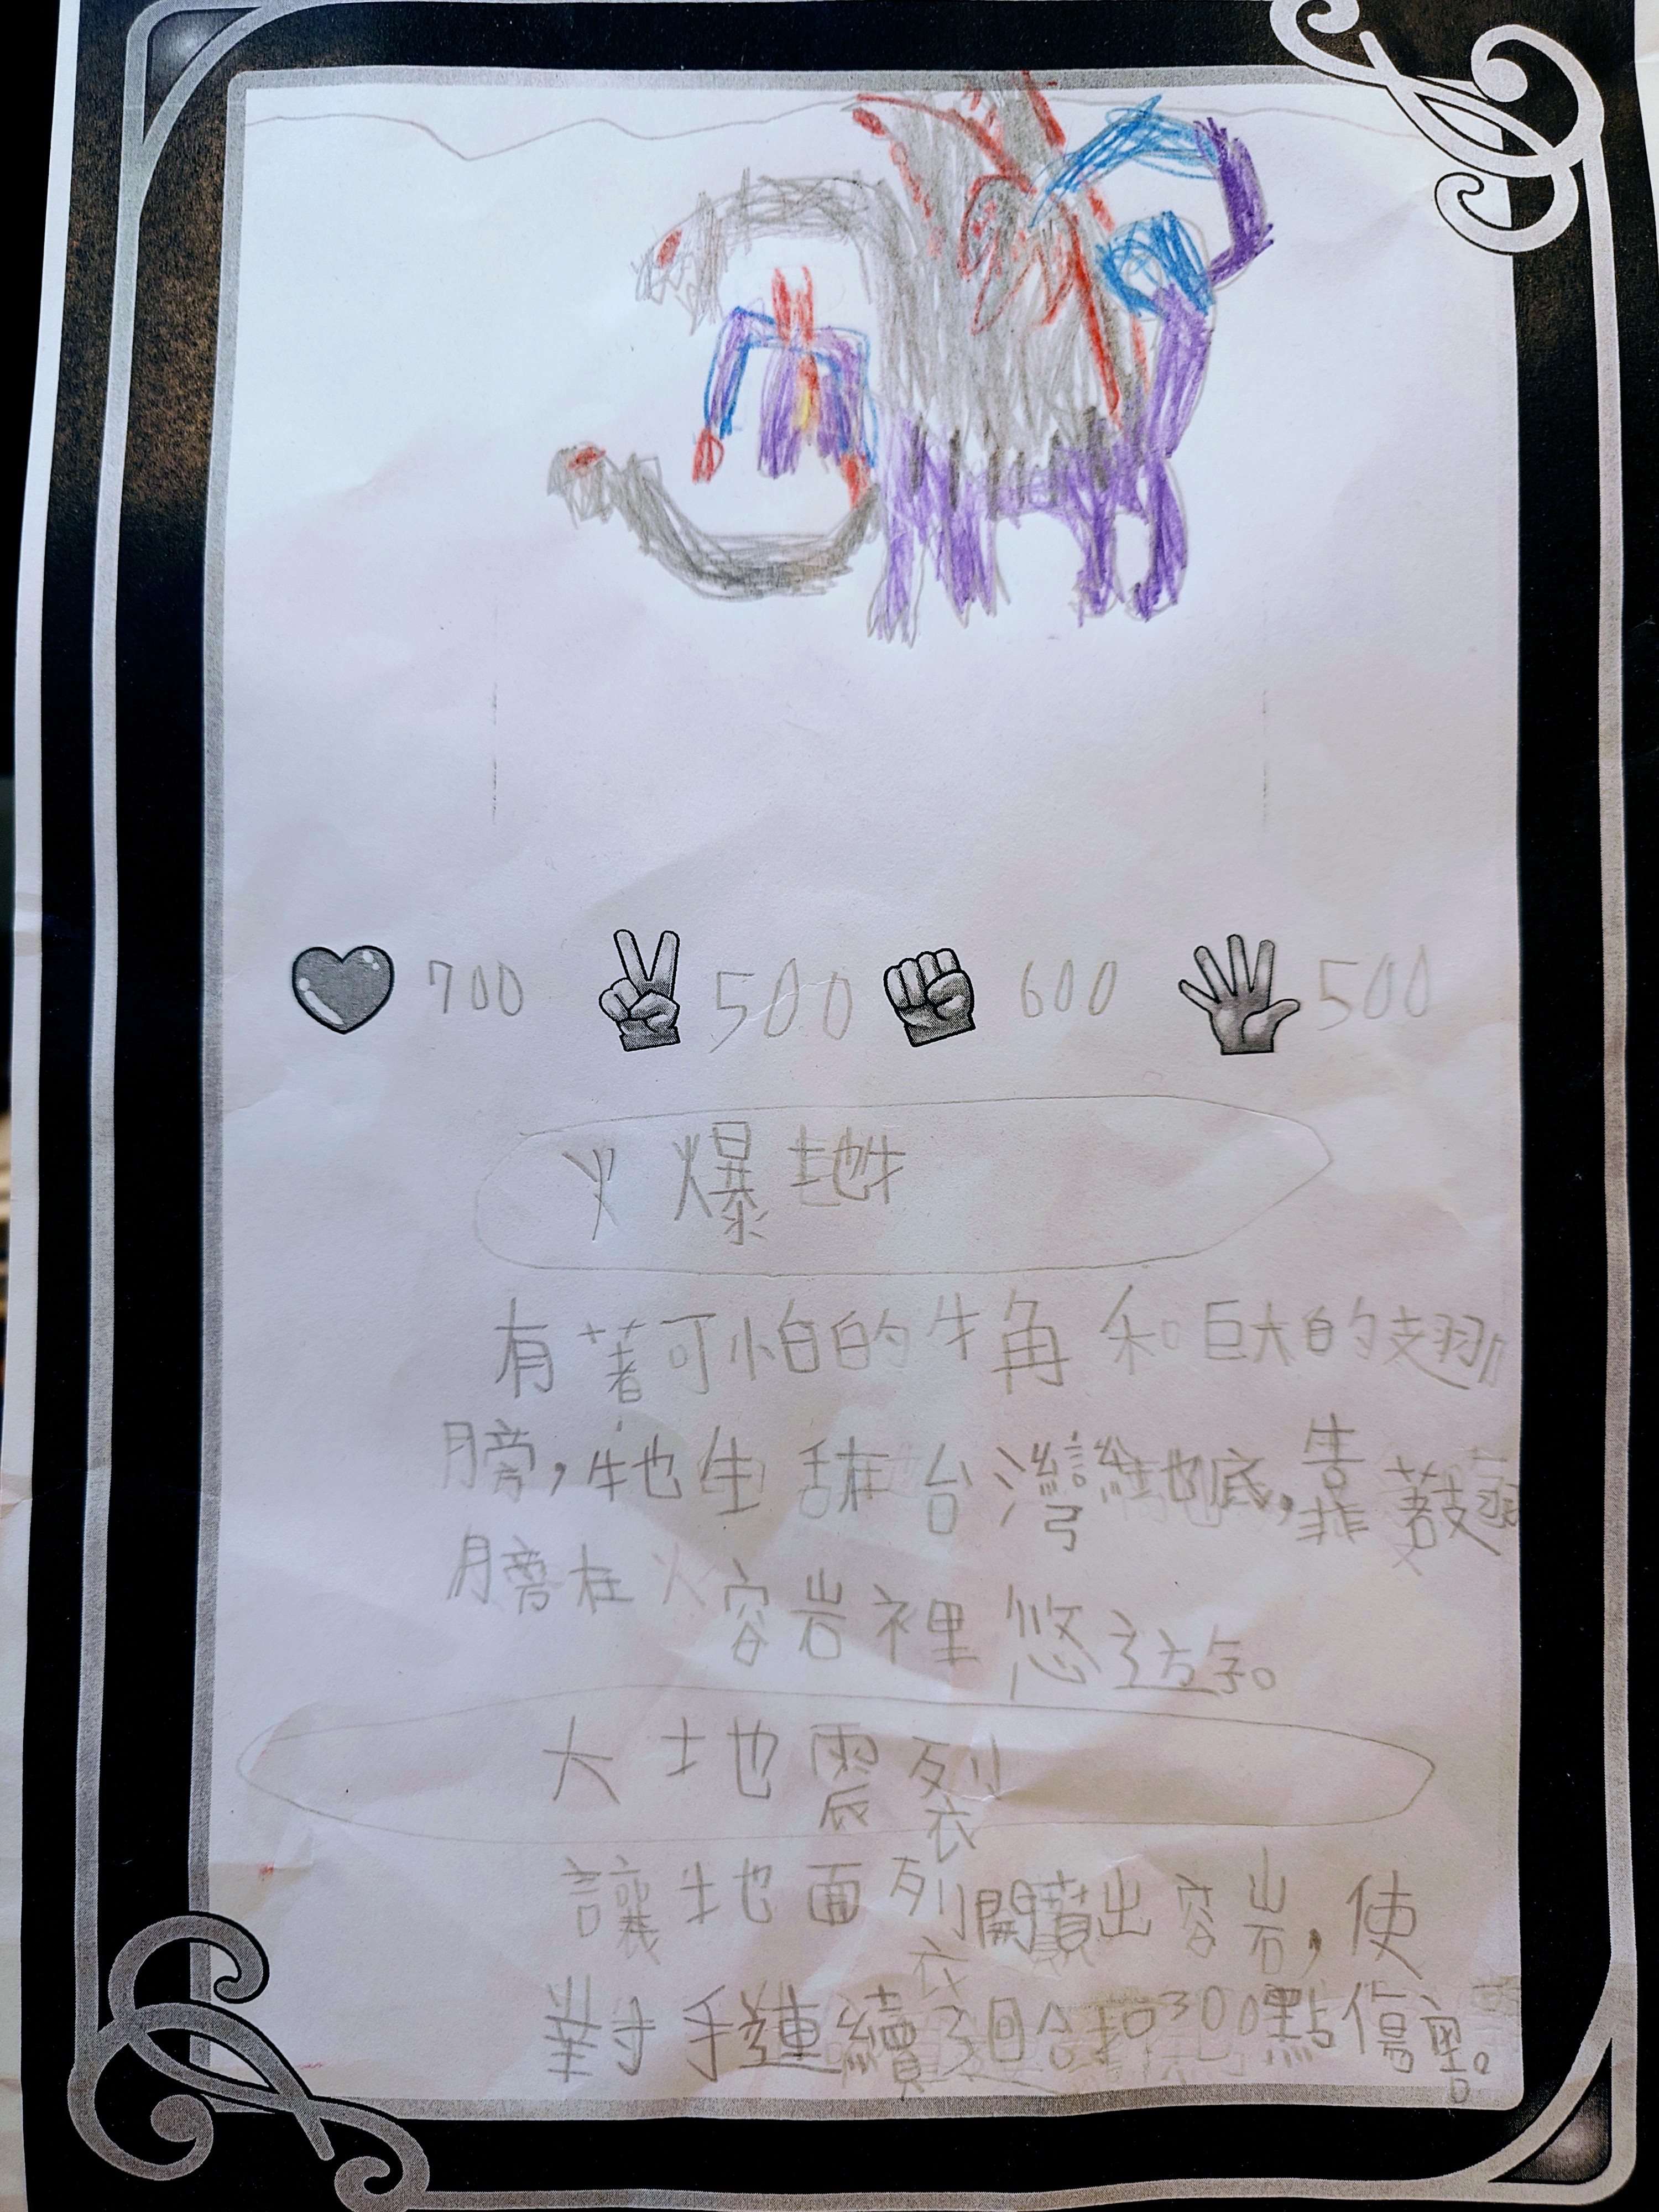 700 500 600 500
火爆地牛
有著可怕的牛角和巨大的翅
膀,牠生活在台灣地底,靠著
膀在火容岩裡悠遊。
大地震裂
讓地面裂開噴出容岩,使
對手連續3回合扣300點傷害。